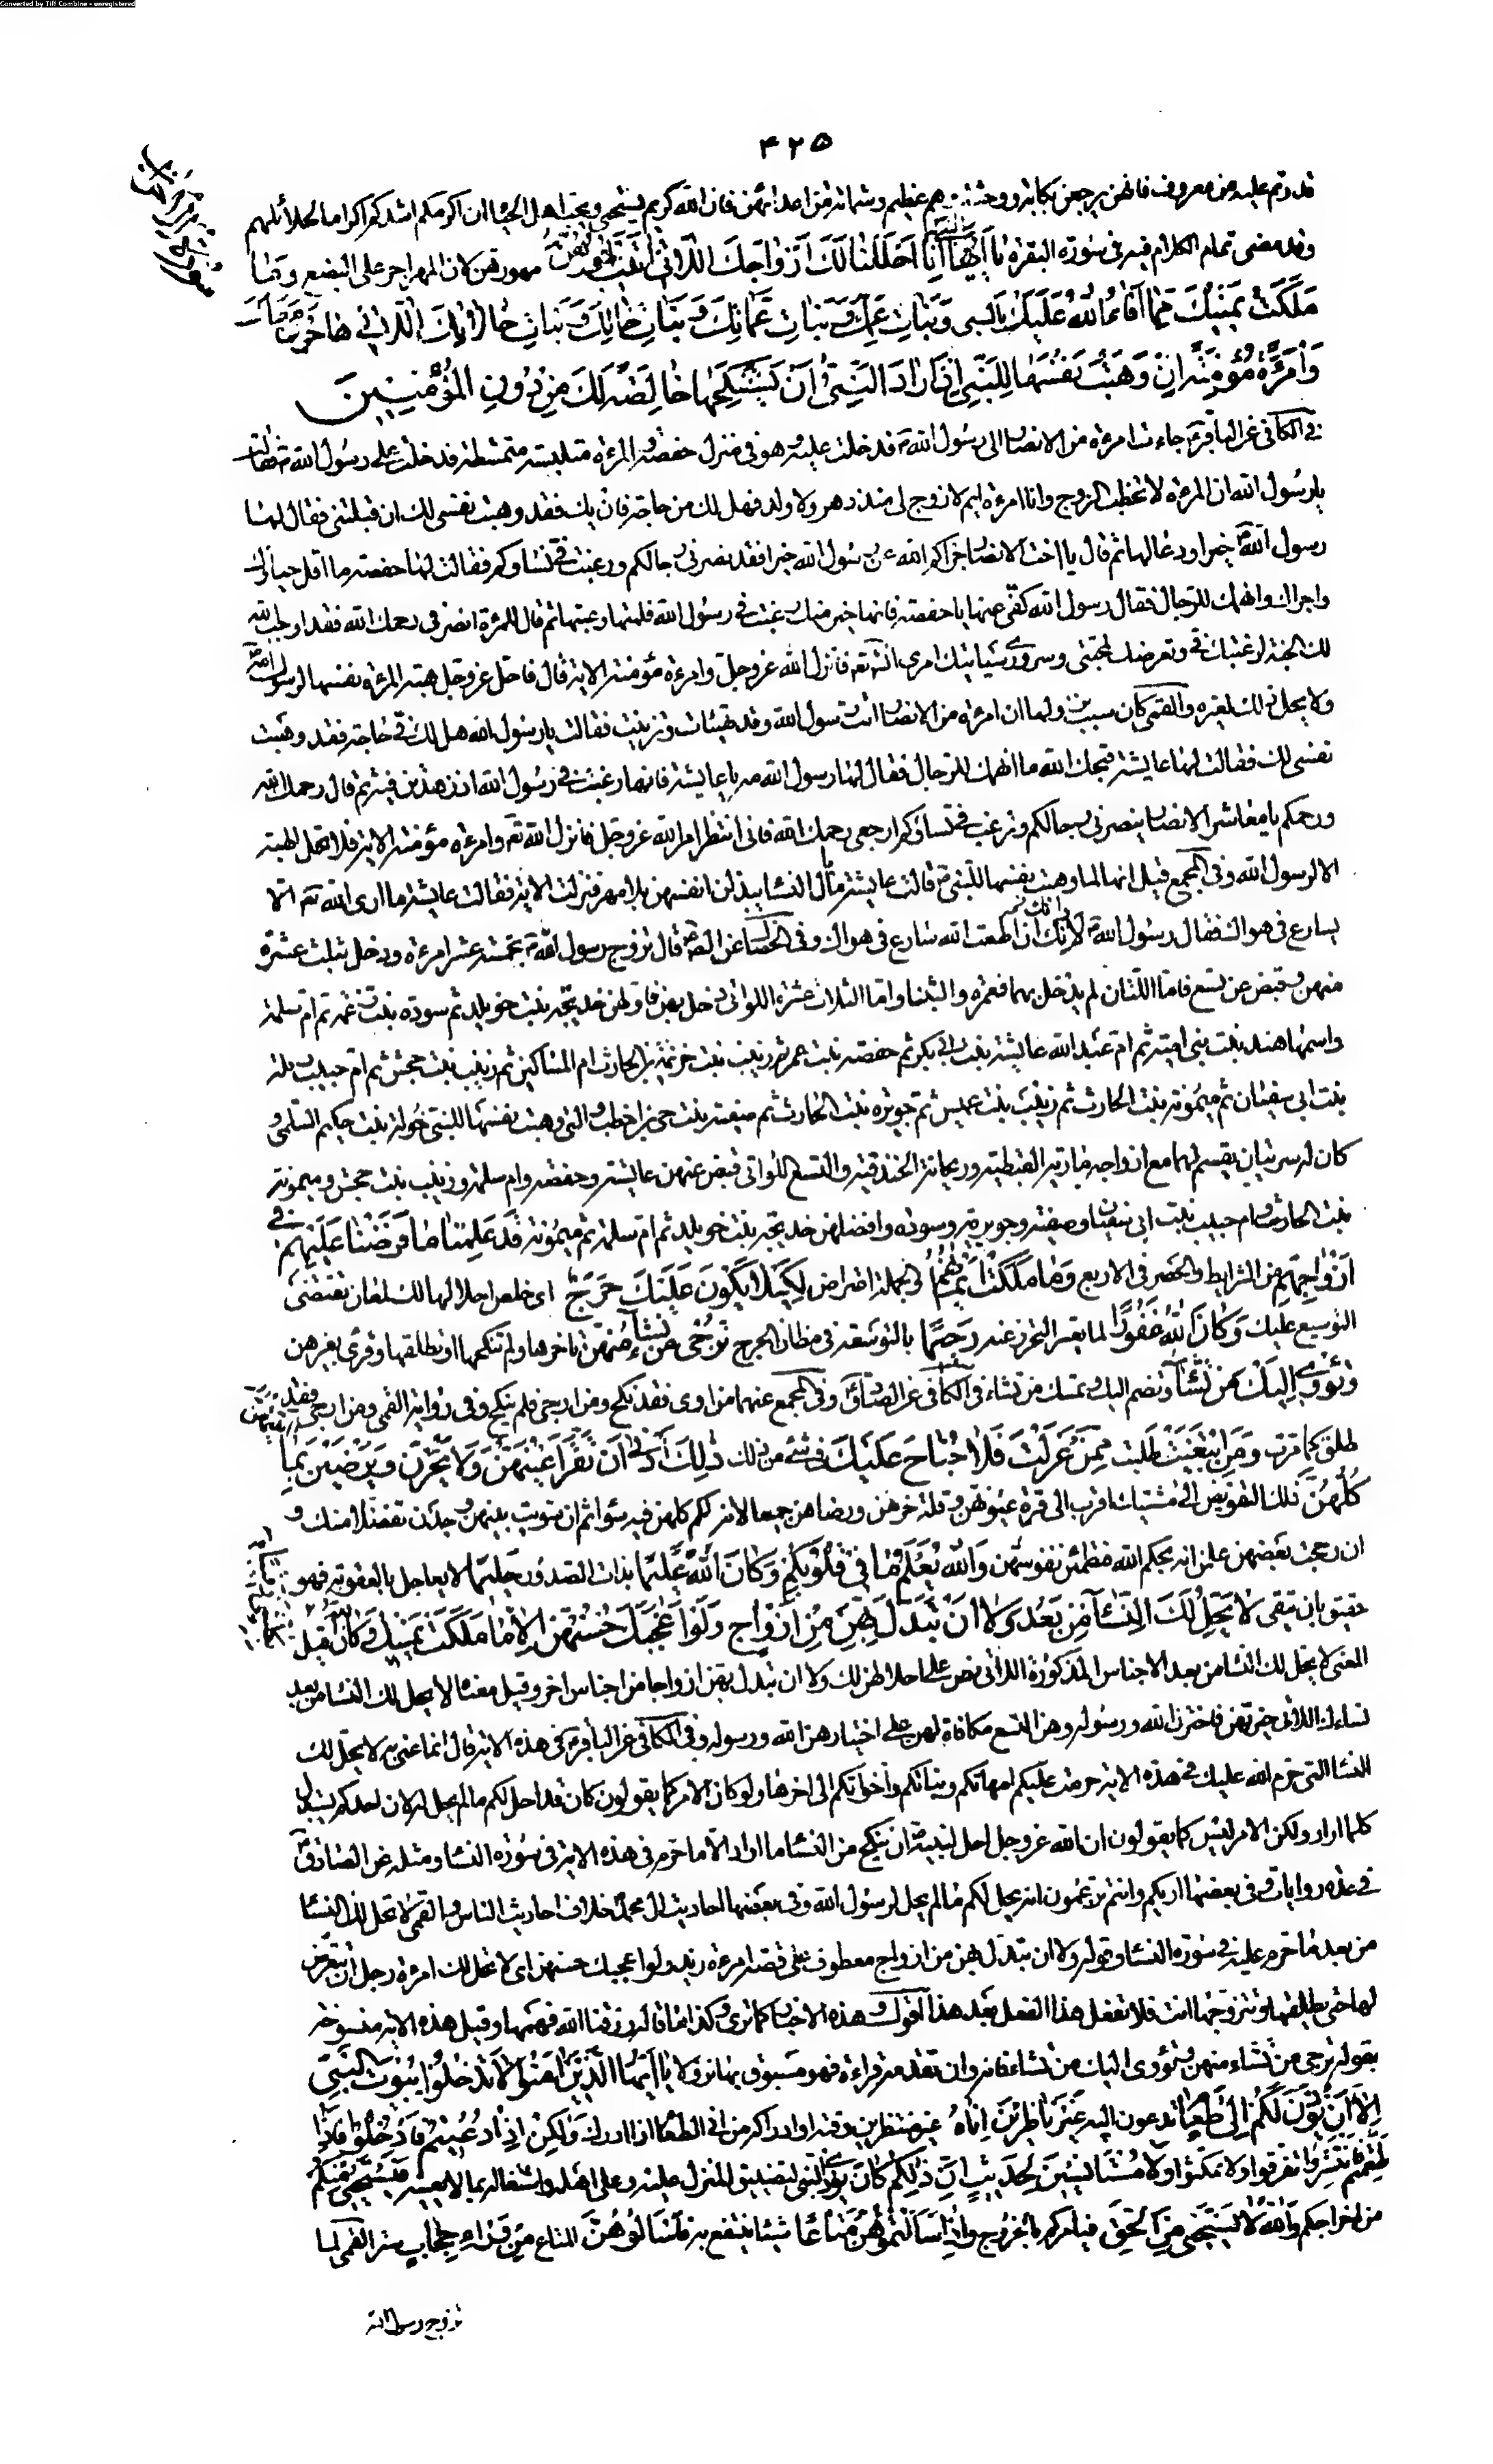 Converted by Tiff Combine - unregistered
۴۲۵
قدرتم عليه من معروف فانهن يرجعن بكابة ووحشة وهم عظيم وشماتة من اعدائهن فان الله كريم يستحيي ويحب اهل الحيا ان اكرمكم اشدكم اكراما لحلائلهم
وقد مضى تمام الكلام فيه في سورة البقرة يا أيها النبي إنا أحللنا لك أزواجك اللاتي آتيت أجورهن مهورهن لان المهر اجر على البضع وما
ملكت يمينك مما أفاء الله عليك بالسبي وبنات عمك وبنات عماتك وبنات خالك وبنات خالاتك اللاتي هاجرن معك
وامرأة مؤمنة إن وهبت نفسها للنبي إن أراد النبي أن يستنكحها خالصة لك من دون المؤمنين
في الكافي عن الباقر ع جاءت امرءة من الانصار الى رسول الله ص فدخلت عليه وهو في منزل حفصة والمرءة متلبسة متمشطة فدخلت على رسول الله ص فقالت
يا رسول الله ان المرءة لا تخطب الزوج وانا امرءة ايم لا زوج لي منذ دهر ولا ولد فهل لك من حاجة فان يك فقد وهبت نفسي لك ان قبلتني فقال لها
رسول الله ص خيرا ودعا لها ثم قال يا اخت الانصار جزاكم الله عن رسول الله خيرا فقد نصرني رجالكم ورغبت في نساؤكم فقالت لها حفصة ما اقل حياؤك
واجراك وانهمك للرجال فقال رسول الله كفي عنها يا حفصة فانها خير منك رغبت في رسول الله فلمتها وعبتها ثم قال للمرءة انصرفي رحمك الله فقد اوجب الله
لك الجنة لرغبتك في وتعرضك لمحبتي وسروري سياتيك امري انشاء الله تع فانزل الله عز وجل وامرءة مؤمنة الاية قال فاحل عز وجل هبة المرءة نفسها لرسول الله ص
ولا يحل ذلك لغيره والقمي كان سبب نزولها ان امرءة من الانصار اتت رسول الله وقد تهيئات وتزينت فقالت يا رسول الله هل لك في حاجة فقد وهبت
نفسي لك فقالت لها عايشة قبحك الله ما انهمك للرجال فقال لها رسول الله مه يا عايشة فانها رغبت في رسول الله اذ زهدتن فيه ثم قال رحمك الله
ورحمكم يا معاشر الانصار ينصرني رجالكم وترغب في نساؤكم ارجعي رحمك الله فاني انتظر امر الله عز وجل فانزل الله تع وامرءة مؤمنة الاية فلا تحل الهبة
الا لرسول الله وفي المجمع قيل انها لما وهبت نفسها للنبي ص قالت عايشة ما بال النساء يبذلن انفسهن بلا مهر فنزلت الاية فقالت عايشة ما ارى الله تع الا
يسارع في هواك فقال رسول الله ص لانك ان اطعت الله سارع في هواك وفي الخصال عن الصادق ع قال تزوج رسول الله ص بخمسة عشر امرءة ودخل بثلث عشرة
منهن وقبض عن تسع فاما اللتان لم يدخل بهما فعمرة والشنبا واما الثلاث عشرة اللواتي دخل بهن فاولهن خديجة بنت خويلد ثم سودة بنت زمعة ثم ام سلمة
واسمها هند بنت بني امية ثم ام عبد الله عايشة بنت ابي بكر ثم حفصة بنت عمر ثم زينب بنت خزيمة بن الحارث ام المساكين ثم زينب بنت جحش ثم ام حبيب رملة
بنت ابي سفيان ثم ميمونة بنت الحارث ثم زينب بنت عميس ثم جويرية بنت الحارث ثم صفية بنت حي بن اخطب والتي وهبت نفسها للنبي خولة بنت حكيم السلمي و
كان له سريتان يقسم لهما مع ازواجه مارية القبطية وريحانة الخندقية والتسع اللواتي قبض عنهن عايشة وحفصة وام سلمة وزينب بنت جحش وميمونة
بنت الحارث وام حبيب بنت ابي سفيان وصفية وجويرية وسودة وافضلهن خديجة بنت خويلد ثم ام سلمة ثم ميمونة قد علمنا ما فرضنا عليهم في
أزواجهم من الشرايط والحصر في الاربع وما ملكت أيمانهم والجملة اعتراض لكيلا يكون عليك حرج اي خلص احلالها لك لمعان تقتضي
التوسيع عليك وكان الله غفورا لما يعسر التحرز عنه رحيما بالتوسعة في مظان الحرج ترجي من تشاء منهن تاخرها ولم تنكحها او تطلقها وقرئ بغير همز
وتؤوي إليك من تشاء وتضم اليك وتمسك من تشاء في الكافي عن الصادق ع وفي المجمع عنهما من اوى فقد نكح ومن ارجى فلم ينكح وفي رواية القمي ومن ارجى فقد
طلق كما مرت ومن ابتغيت طلبت ممن عزلت فلا جناح عليك في شئ من ذلك ذلك أدنى أن تقر أعينهن ولا يحزن ويرضين بما آتيتهن
كلهن ذلك التفويض الى مشيتك اقرب الى قرة عيونهن وقلة حزنهن ورضاهن جميعا لانه حكم كلهن فيه سواء ثم ان سويت بينهن وجدن تفضلا منك و
ان رجحت بعضهن علمن انه بحكم الله فتطمئن نفوسهن والله يعلم ما في قلوبكم وكان الله عليما بذات الصدور حليما لا يعاجل بالعقوبة فهو
حقيق بان يتقى لا يحل لك النساء من بعد ولا أن تبدل بهن من أزواج ولو أعجبك حسنهن إلا ما ملكت يمينك وكان الله على كل شيء رقيبا قيل
المعنى لا يحل لك النساء من بعد الاجناس المذكورة اللاتي نص على احلالهن لك ولا ان تبدل بهن ازواجا من اجناس اخر وقيل معناه لا يحل لك النساء من بعد
نساءك اللاتي خيرتهن فاخترن الله ورسوله وهن التسع مكافاة لهن على اختيارهن الله ورسوله وفي الكافي عن الباقر ع في هذه الاية قال انما عنى به لا يحل لك
النساء التي حرم الله عليك في هذه الاية حرمت عليكم امهاتكم وبناتكم واخواتكم الى اخرها ولو كان الامر كما يقولون كان قد احل لكم ما لم يحل له لان احدكم يستبدل
كلما اراد ولكن الامر ليس كما يقولون ان الله عز وجل احل لنبيه ص ان ينكح من النساء ما اراد الا ما حرم في هذه الاية في سورة النساء ومثله عن الصادق ع
في عدة روايات وفي بعضها اريكم وانتم تزعمون انه يحل لكم ما لم يحل لرسول الله وفي بعضها احاديث ال محمد خلاف احاديث الناس والقمي لا تحل لك النساء
من بعد ما حرم عليه في سورة النساء وقوله ولا ان تبدل بهن من ازواج معطوف على قصة امرءة زيد ولو اعجبك حسنهن اي لا تحل لك امرءة رجل ان تتعرض
لها حتى يطلقها وتتزوجها انت فلا تفعل هذا الفعل بعد هذا اقول وهذه الاخبار كما ترى وكذا ما قاله رزقنا الله فهمها وقيل هذه الاية منسوخة
بقوله ترجي من تشاء منهن وتؤوي اليك من تشاء فانه وان تقدمه قراءة فهو مسبوق بها نزولا يا أيها الذين آمنوا لا تدخلوا بيوت النبي
إلا أن يؤذن لكم إلى طعام تدعون اليه غير ناظرين إناه غير منتظرين وقته او ادراكه من انى الطعام اذا ادرك ولكن إذا دعيتم فادخلوا فإذا
طعمتم فانتشروا تفرقوا ولا تمكثوا ولا مستأنسين لحديث إن ذلكم كان يؤذي النبي لتضييق المنزل عليه وعلى اهله واشغاله بما لا يعنيه فيستحيي منكم
من اخراجكم والله لا يستحيي من الحق فيامركم بالخروج وإذا سألتموهن متاعا شيئا ينتفع به فاسألوهن المتاع من وراء حجاب ستر القمي لما
تزوج رسول الله